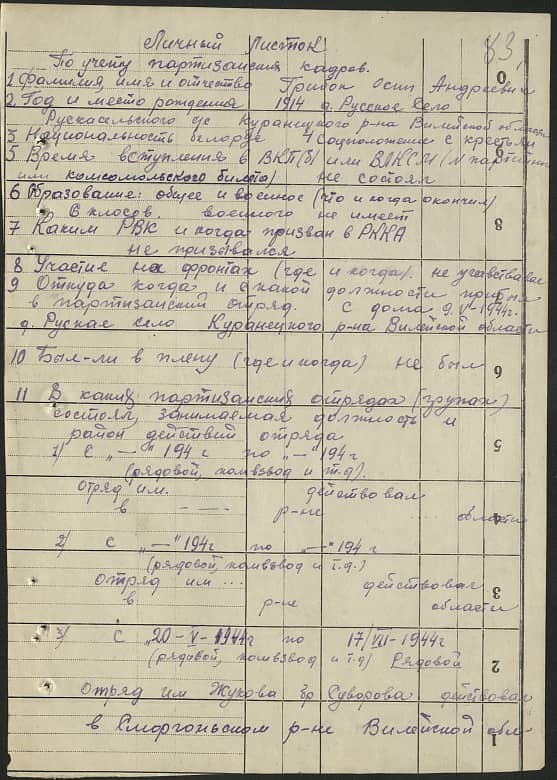 83.
Личный листок
По учету партизанских кадров.
1 Фамилия, имя и отчество Грибок Осип Андреевич
2. Год и место рождения 1914 д. Русское Село
Рускасельского с/с Куранецкого р-на Вилейской области
3 Национальность белорус 4 Соцположение с крестьян
5 Время вступления в ВКП(б) или ВЛКСМ (N партийн
или комсомольского билета) не состоял
6 Образование: общее и военное (что и когда окончил)
6 класов. военного не имеет
7 Каким РВК и когда призван в РККА
не призывался
8 Участие на фронтах (где и когда). не учавствовал
9 Откуда когда и с какой должности прибыл
в партизанский отряд. с дома 9.V-1944г.
д. Руская село Куранецкого р-на Вилейской области
10 Был-ли в плену (где и когда) не был
11 В каких партизанских отрядах (группах)
состоял, занимаемая должность и
район действий отряда
1) С „—“ 194 г по „—“ 194г
(рядовой, комвзвод и т.д).
Отряд им. действовал
в - — - р-не области
2) с „—“ 194г по „—“ 194 г
(рядовой, комвзвод и т.д.)
Отряд им ... действовал
в р-не области
3) с „20-V-1944г по 17/VII-1944г
(рядовой, комвзвод и т.д) Рядовой
Отряд им Жукова бр Суворова действовал
в Сморгоньском р-не Вилейской обл-
0
8
6
5
4
3
2
1